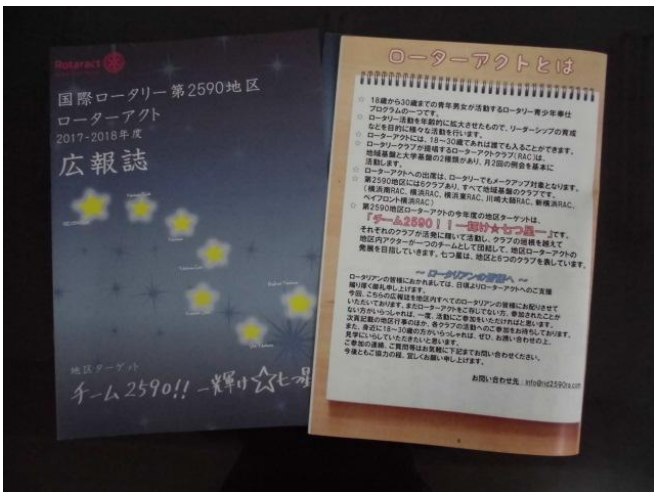 Rotaract
国際ロータリー第2590地区
ローターアクト
2017-2018年度
広報誌
地区ターゲット
チーム2590!! ―輝け☆七つ星
ローターアクトとは
○ 18歳から30歳までの青年男女が活動するロータリー青少年奉仕
プログラムの一つです。
○ ロータリー活動を年齢的に拡大させたもので、リーダーシップの育成
などを目的に様々な活動を行います。
○ ローターアクトには、18～30歳であれば誰でも入ることができます。
○ ロータリークラブが提唱するローターアクトクラブ(RAC)は、
地域基盤と大学基盤の2種類があり、月2回の例会を基本に
活動します。
○ ローターアクトへの出席は、ロータリーでもメークアップ対象となります。
○ 第2590地区には6クラブあり、すべて地域基盤のクラブです。
(横浜南RAC、横浜RAC、横浜東RAC、川崎大師RAC、新横浜RAC、
ベイフロント横浜RAC)
○ 第2590地区ローターアクトの今年度の地区ターゲットは、
『チーム2590！！―輝け★七つ星―』です。
それぞれのクラブが活発に輝いて活動し、クラブの垣根を越えて
地区内アクターが一つのチームとして団結して、地区ローターアクトの
発展を目指していきます。七つ星は、地区と6つのクラブを表しています。
～ ロータリアンの皆様へ ～
ロータリアンの皆様におかれましては、日頃よりローターアクトへのご支援
賜り厚く御礼申し上げます。
今回、こちらの広報誌を地区内すべてのロータリアンの皆様にお配りさせて
いただいております。まだローターアクトをご存じでない方、参加されたことが
ない方がいらっしゃれば、一度、活動にご参加をいただければと思います。
次頁記載の地区行事のほか、各クラブの活動へのご参加をお待ちしております。
また、身近に18～30歳の方がいらっしゃれば、ぜひ、お誘い合わせの上、
見学にいらしていただきたいと思います。
ご参加の連絡、ご質問等はお気軽に下記までお問い合わせください。
今後ともご協力の程、宜しくお願い申し上げます。
お問い合わせ先：info@rid2590ra.com